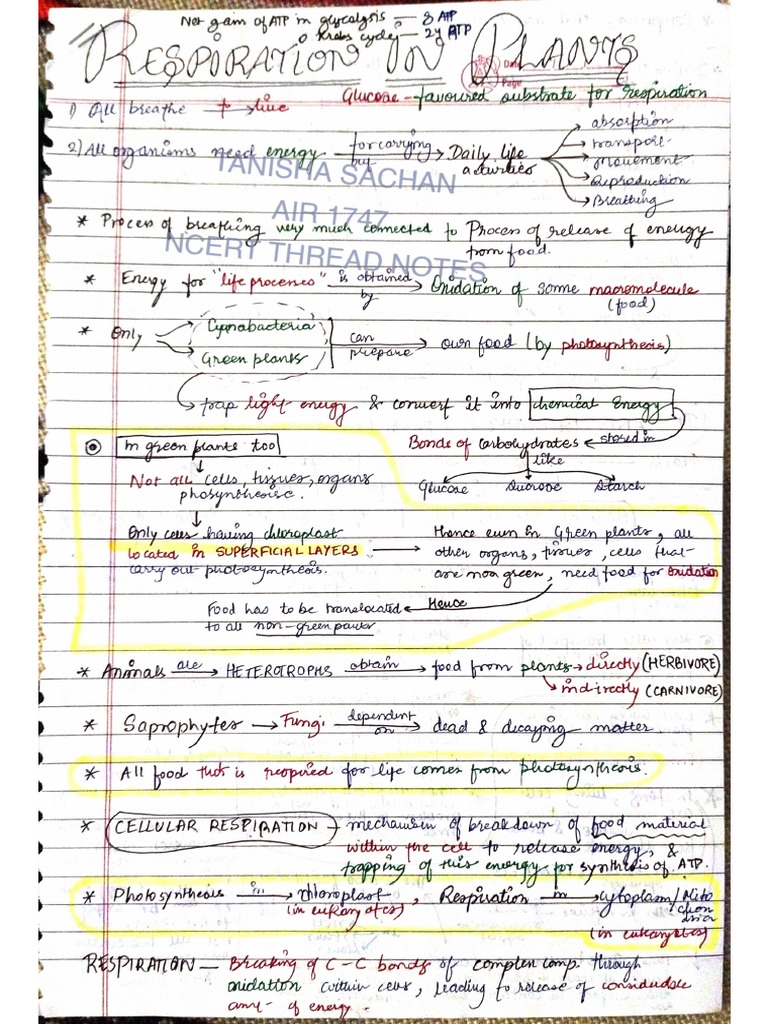 Net gain of ATP in glycolysis — 8 ATP
Krebs cycle — 24 ATP
RESPIRATION IN PLANTS
Date
Page
Glucose - favoured substrate for respiration
1) All breathe → to live
2) All organisms need energy for carrying out → Daily life activities
absorption
transport
movement
Reproduction
Breathing
TANISHA SACHAN
AIR 1747
NCERT THREAD NOTES
* Process of breathing very much connected to Process of release of energy
from food.
* Energy for "life processes" is obtained by → Oxidation of some macromolecule
(food)
* Only
Cyanobacteria
Green plants
can prepare → own food (by photosynthesis)
→ trap light energy & convert it into chemical Energy
In green plants too
Bonds of carbohydrates ← stored in
↓
like
Not all cells, tissues, organs
Glucose Sucrose Starch
photosynthesise.
↓
Only cells having chloroplast
located in SUPERFICIAL LAYERS →
carry out photosynthesis.
Hence even in Green plants, all
other organs, tissues, cells that
are non green, need food for oxidation
Food has to be translocated ← Hence
to all non-green parts
* Animals are → HETEROTROPHS obtain → food from plants → directly (HERBIVORE)
↳ indirectly (CARNIVORE)
* Saprophytes → Fungi dependent on → dead & decaying matter.
* All food that is required for life comes from photosynthesis.
* CELLULAR RESPIRATION - mechanism of breakdown of food material
within the cell to release energy, &
trapping of this energy for synthesis of ATP.
* Photosynthesis in → chloroplast, Respiration in → cytoplasm/Mitochondria
(in eukaryotes)
(in eukaryotes)
RESPIRATION — Breaking of C-C bonds of complex comp. through
oxidation within cells, leading to release of considerable
amt. of energy.